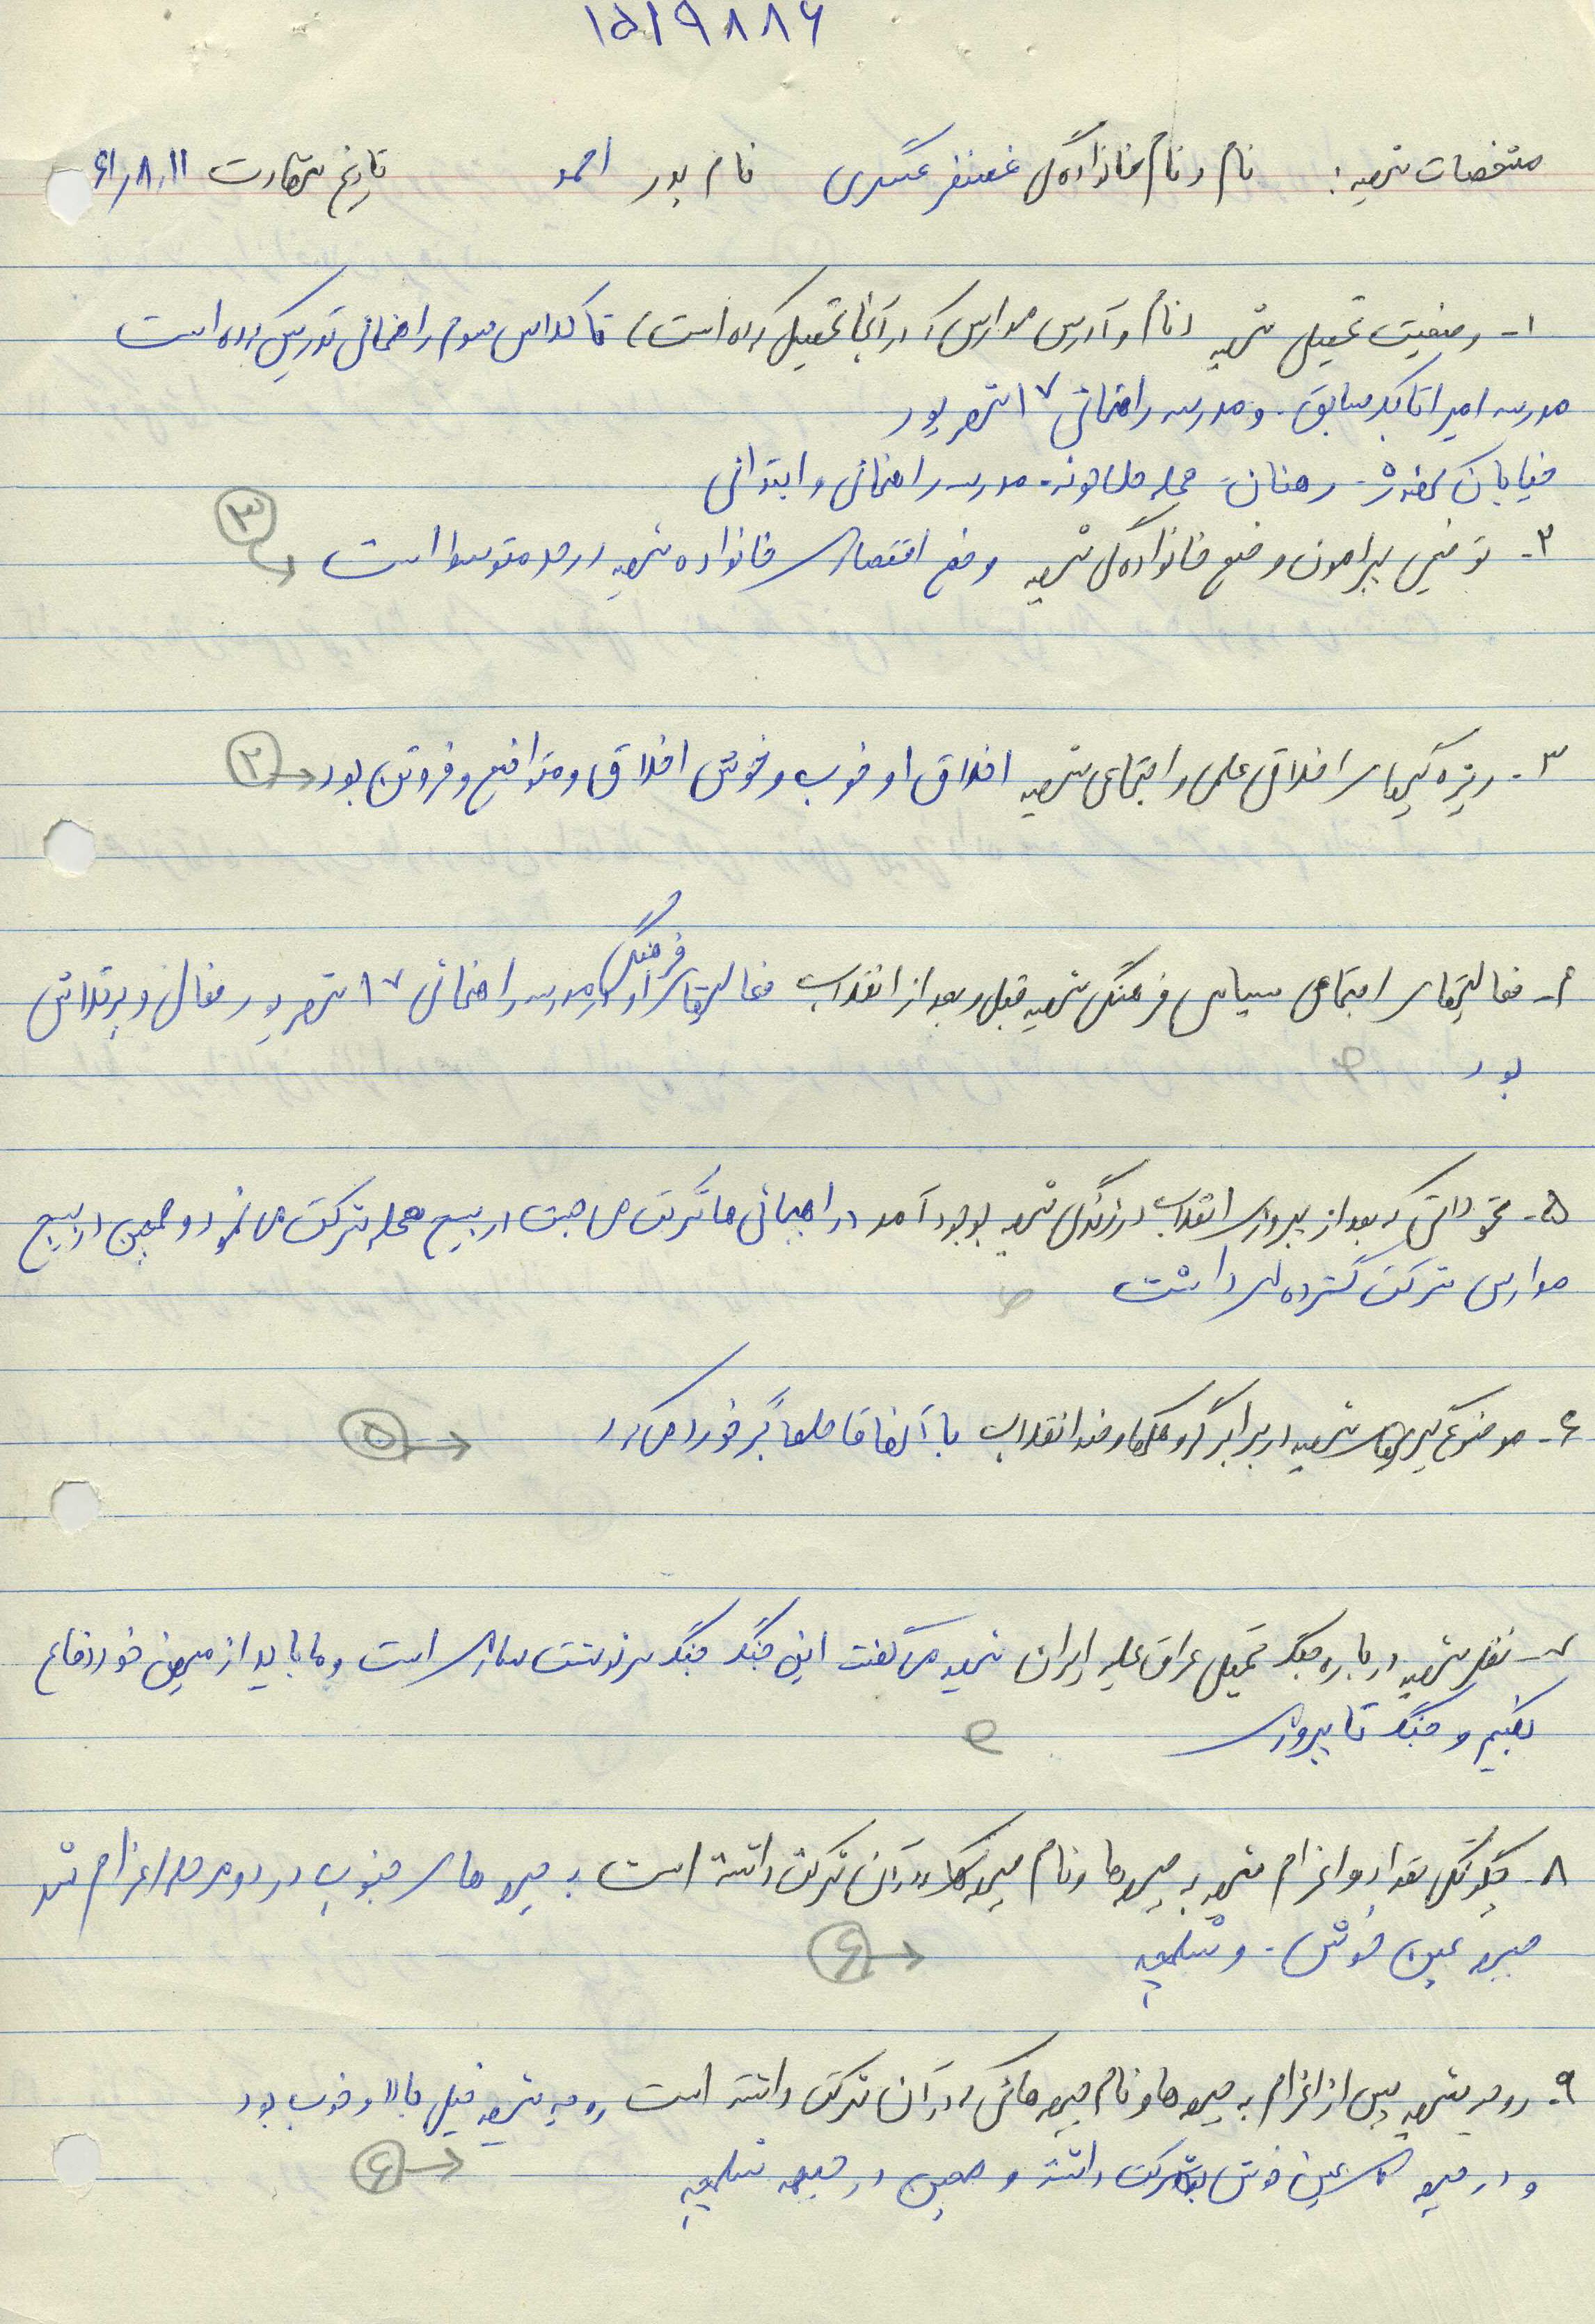 ۱۵۱۹۸۸۶
مشخصات شهید: نام و نام خانوادگی غضنفر عسگری نام پدر احمد تاریخ شهادت ۶۱/۸/۱۱
۱- وضعیت تحصیلی شهید (نام و آدرس مدارس که در آنجا تحصیل کرده است) تا کلاس سوم راهنمائی تدریس کرده است
مدرسه امیر اتابک سابق - و مدرسه راهنمائی ۱۷ شهریور
خیابان کهندژ - رهنان - محله - مدرسه راهنمائی و ابتدائی
۲- توضیحی پیرامون وضع خانوادگی شهید وضع اقتصادی خانواده شهید در حد متوسط است ۳
۳- ویژه گیهای اخلاقی علمی و اجتماعی شهید اخلاق او خوب و خوش اخلاق و متواضع و فروتن بود ۲
۴- فعالیتهای اجتماعی سیاسی فرهنگی شهید قبل و بعد از انقلاب فعالیتهای فرهنگی او در مدرسه راهنمائی ۱۷ شهریور فعال و پرتلاش
بود
۵- تحولاتی که بعد از پیروزی انقلاب در زندگی شهید بوجود آمد در راهپیمائی ها شرکت می جست در بسیج محله شرکت می نمود و همچنین در بسیج
مدارس شرکت گسترده ای داشت
۶- موضع گیریهای شهید در برابر گروهکهای ضد انقلاب با آنها قاطعانه برخورد می کرد ۵
۷- نظر شهید درباره جنگ تحمیلی عراق علیه ایران شهید می گفت این جنگ جنگ سرنوشت سازی است و ما باید از میهن خود دفاع
بکنیم و جنگ تا پیروزی
۸- چگونگی تعداد و اعزام شهید به جبهه ها و نام جبهه هائیکه در آن شرکت داشته است به جبهه های جنوب در دو مرحله اعزام شد
جبهه عین خوش - و شلمچه ۶
۹- روحیه شهید پس از اعزام به جبهه ها و نام جبهه هائی که در آن شرکت داشته است روحیه شهید خیلی بالا و خوب بود
و در جبهه های عین خوش شرکت داشته و همچنین در جبهه شلمچه ۶